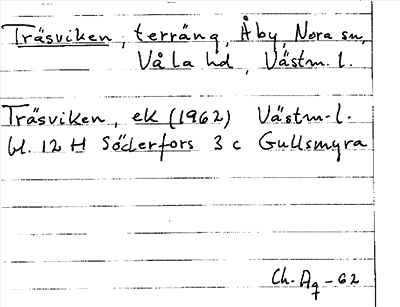 Träsviken, terräng, Åby, Nora sn,
Våla hd, Västm. l.
Träsviken, ek (1962) Västm. l.
bl. 12 H Söderfors 3 c Gullsmyra
Ch. Ag -62